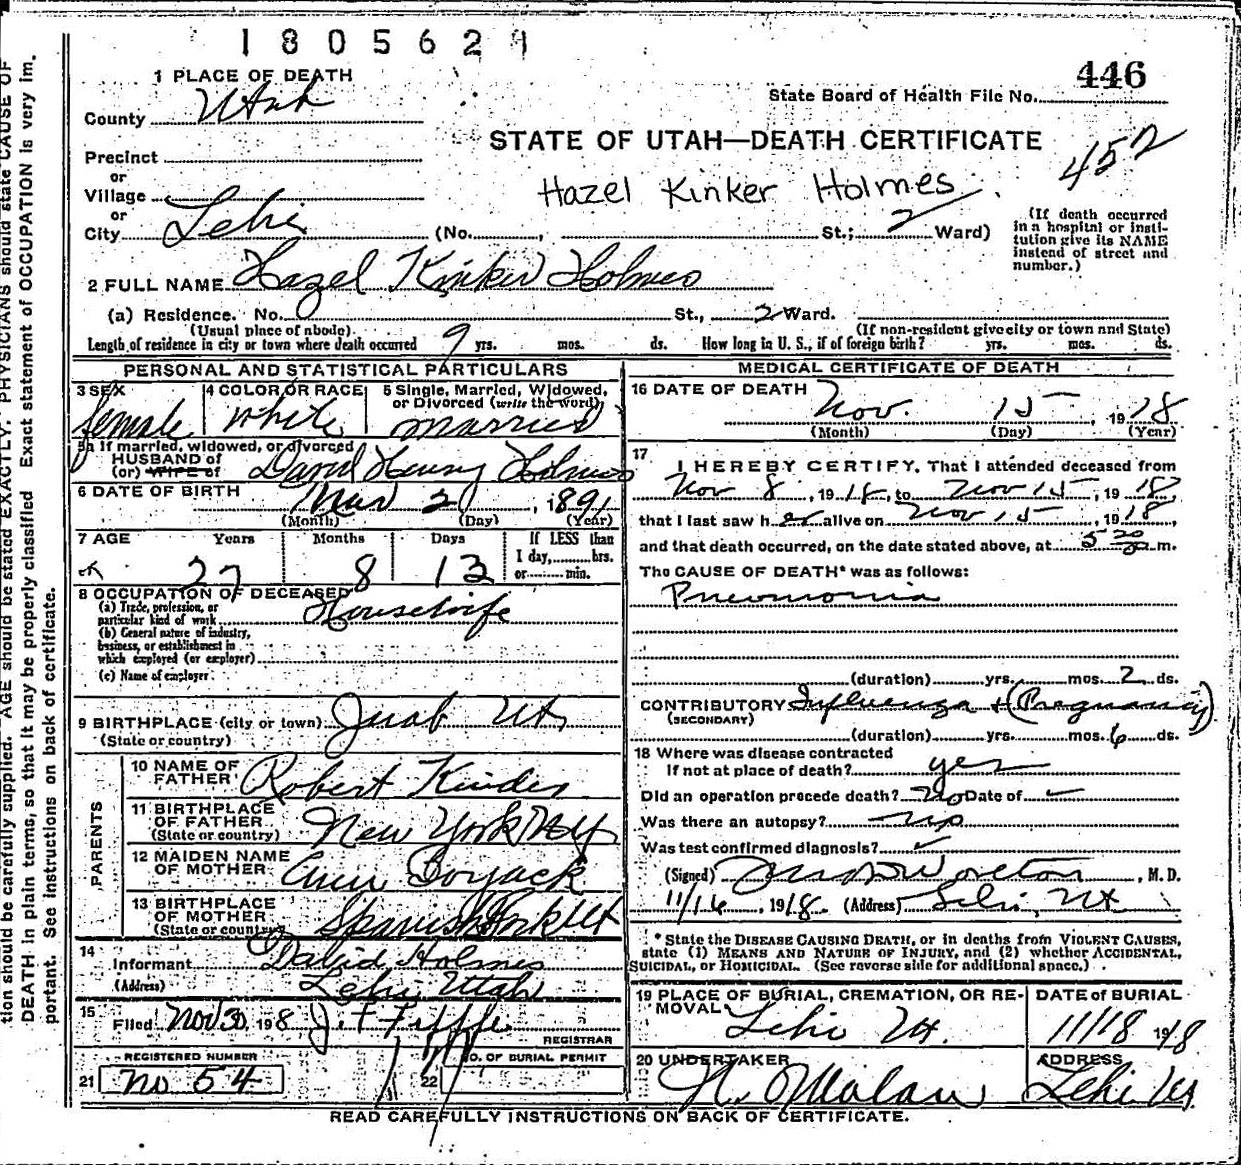 1805621
1 PLACE OF DEATH
446
County Utah
State Board of Health File No.
STATE OF UTAH—DEATH CERTIFICATE
452
Precinct
or
Village
Hazel Kinker Holmes
or
City Lehi (No. , St.; 2 Ward)
(If death occurred in a hospital or insti-
tution give its NAME
instead of street and
number.)
2 FULL NAME Hazel Kinker Holmes
(a) Residence. No. St., 2 Ward.
(Usual place of abode) (If non-resident give city or town and State)
Length of residence in city or town where death occurred 9 yrs. mos. ds. How long in U. S., if of foreign birth? yrs. mos. ds.
PERSONAL AND STATISTICAL PARTICULARS
3 SEX female
4 COLOR OR RACE White
5 Single, Married, Widowed,
or Divorced (write the word)
Married
5a If married, widowed, or divorced
HUSBAND of
(or) WIFE of David Henry Holmes
6 DATE OF BIRTH Mar 2, 1891
(Month) (Day) (Year)
7 AGE Years Months Days If LESS than
1 day, hrs.
or min.
27 8 13
8 OCCUPATION OF DECEASED
(a) Trade, profession, or
particular kind of work Housewife
(b) General nature of industry,
business, or establishment in
which employed (or employer)
(c) Name of employer
9 BIRTHPLACE (city or town) Juab Ut
(State or country)
PARENTS
10 NAME OF
FATHER Robert Kinder
11 BIRTHPLACE
OF FATHER New York NY
(State or country)
12 MAIDEN NAME
OF MOTHER Ann Boyack
13 BIRTHPLACE
OF MOTHER Spanish Fork Ut
(State or country)
14
Informant David Holmes
(Address) Lehi Utah
15
Filed Nov 30 1918
REGISTRAR
REGISTERED NUMBER
21 no 54
O. OF BURIAL PERMIT
22
MEDICAL CERTIFICATE OF DEATH
16 DATE OF DEATH Nov. 15 1918
(Month) (Day) (Year)
17
I HEREBY CERTIFY, That I attended deceased from
Nov 8, 1918, to Nov 15, 1918,
that I last saw her alive on Nov 15, 1918,
and that death occurred, on the date stated above, at 5 20 m.
The CAUSE OF DEATH* was as follows:
Pneumonia
(duration) yrs. mos. 2 ds.
CONTRIBUTORY Influenza + (Pregnancy)
(SECONDARY)
(duration) yrs. mos. 6 ds.
18 Where was disease contracted
If not at place of death? yes
Did an operation precede death? No Date of
Was there an autopsy? no
Was test confirmed diagnosis?
(Signed) Worlton, M. D.
11/16, 1918. (Address) Lehi, Ut
* State the DISEASE CAUSING DEATH, or in deaths from VIOLENT CAUSES,
state (1) MEANS AND NATURE OF INJURY, and (2) whether ACCIDENTAL,
SUICIDAL, or HOMICIDAL. (See reverse side for additional space.)
19 PLACE OF BURIAL, CREMATION, OR RE-
MOVAL Lehi Ut.
DATE of BURIAL
11/18 1918
20 UNDERTAKER
N. O. Malan
ADDRESS
Lehi Ut.
READ CAREFULLY INSTRUCTIONS ON BACK OF CERTIFICATE.
tion should be carefully supplied. AGE should be stated EXACTLY. PHYSICIANS should state CAUSE OF
DEATH in plain terms, so that it may be properly classified. Exact statement of OCCUPATION is very im-
portant. See instructions on back of certificate.